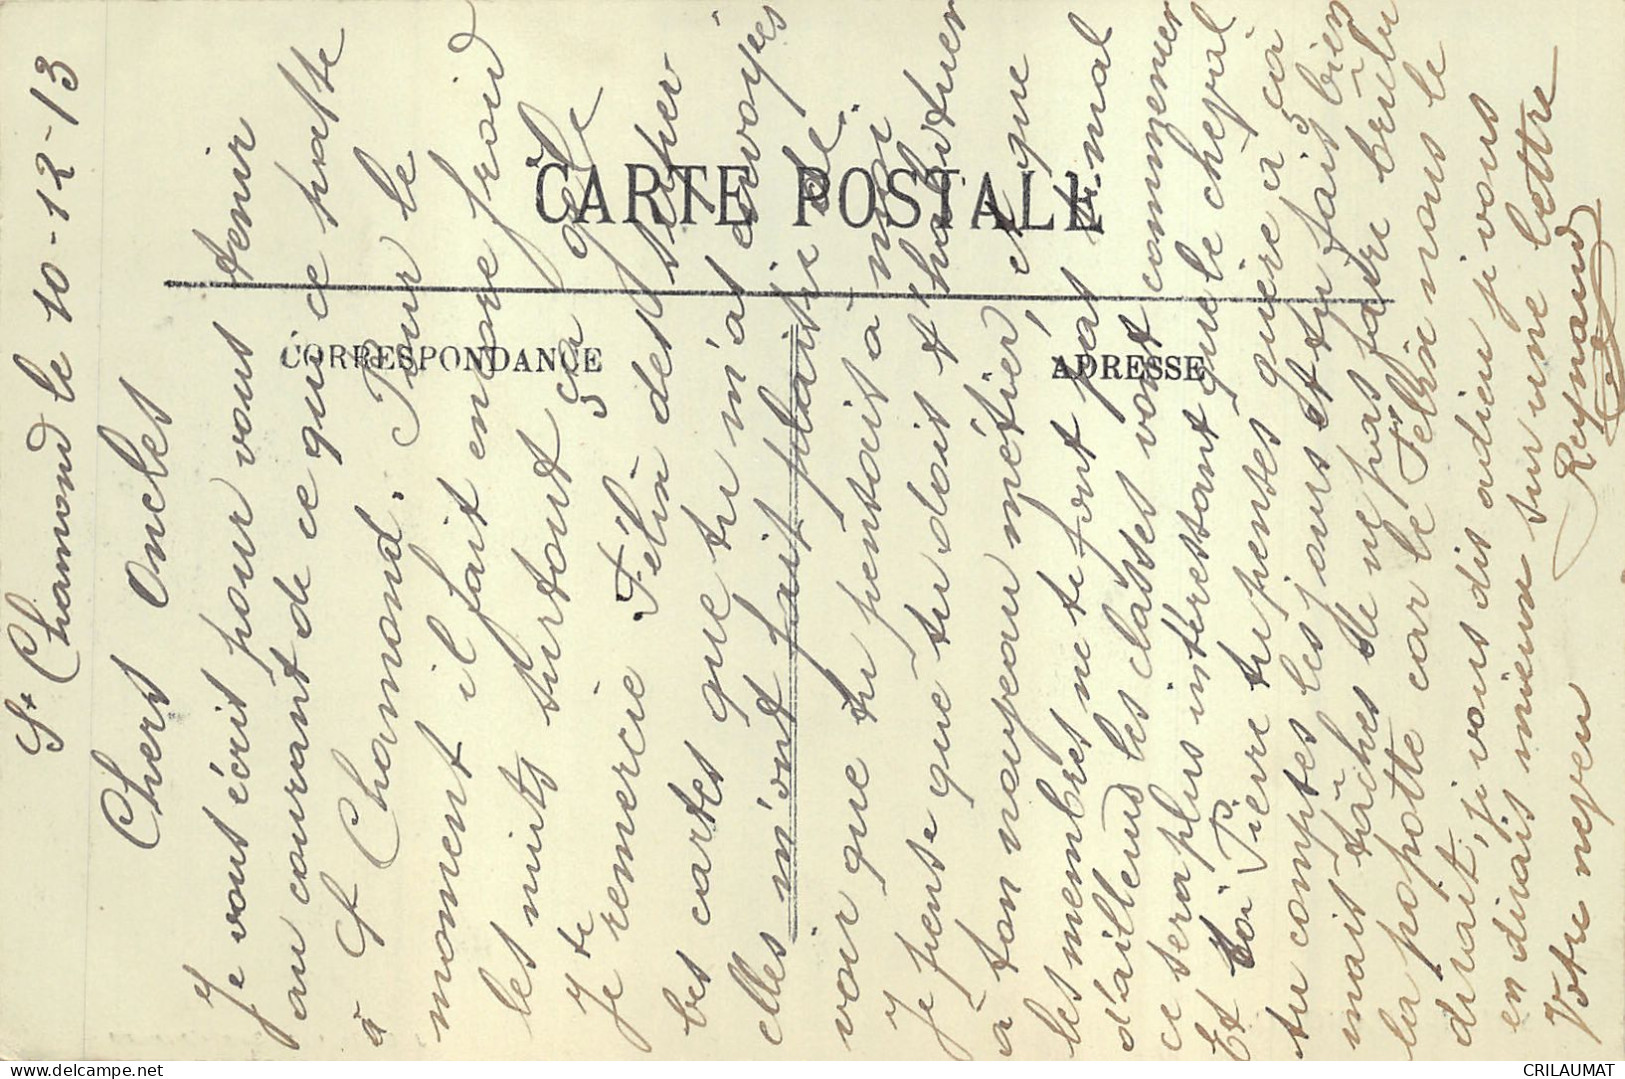 St Chamond le 10-12-13
Chers Oncles
Je vous écris pour vous tenir
au courant de ce qui ce passe
à St Chamond. Pour le
moment il fait encore froid
les nuits surtout ça gèle
Je te remercie Félix des super
bes cartes que tu m'as envoyées
elles m'ont fait plaisir de
voir que tu pensais à moi
Je pense que tu dois t'habituer
à ton nouveau métier, et que
les membres ne te font pas si mal
d'ailleurs les classes vont commencer
ce sera plus intéressant que le cheval
Et toi Pierre tu penses guère à ça
tu comptes les jours et tu fais bien
mais tâches de ne pas faire brûler
la popotte car le Félix nous le
dirait, je vous dis adieu je vous
en dirais mieux sur une lettre
Votre neveu Reynaud
CARTE POSTALE
CORRESPONDANCE
ADRESSE
CRILAUMAT